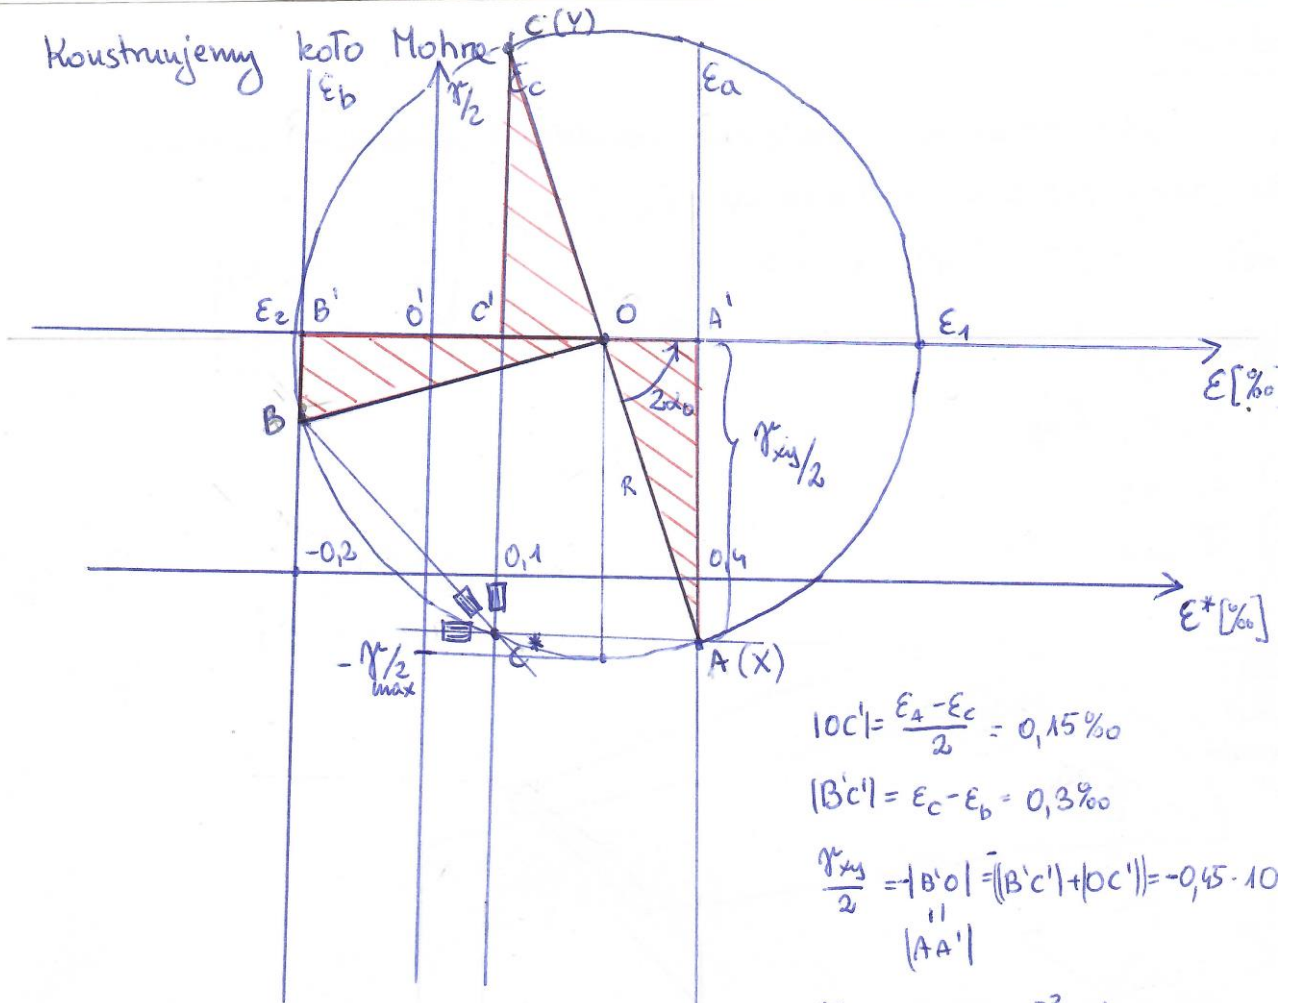 Konstruujemy koło Mohra
C (Y)
εb
γ/2
εc
εa
ε2
B'
O'
C'
O
A'
ε1
ε[‰
2α0
B
γxy/2
R
-0,2
0,1
0,4
ε*[‰]
C*
A (X)
-γ/2 max
|OC'| = (εA - εc)/2 = 0,15‰
|B'C'| = εc - εb = 0,3‰
γxy/2 = -|B'O| = -(|B'C'|+|OC'|) = -0,45·10
||
|AA'|